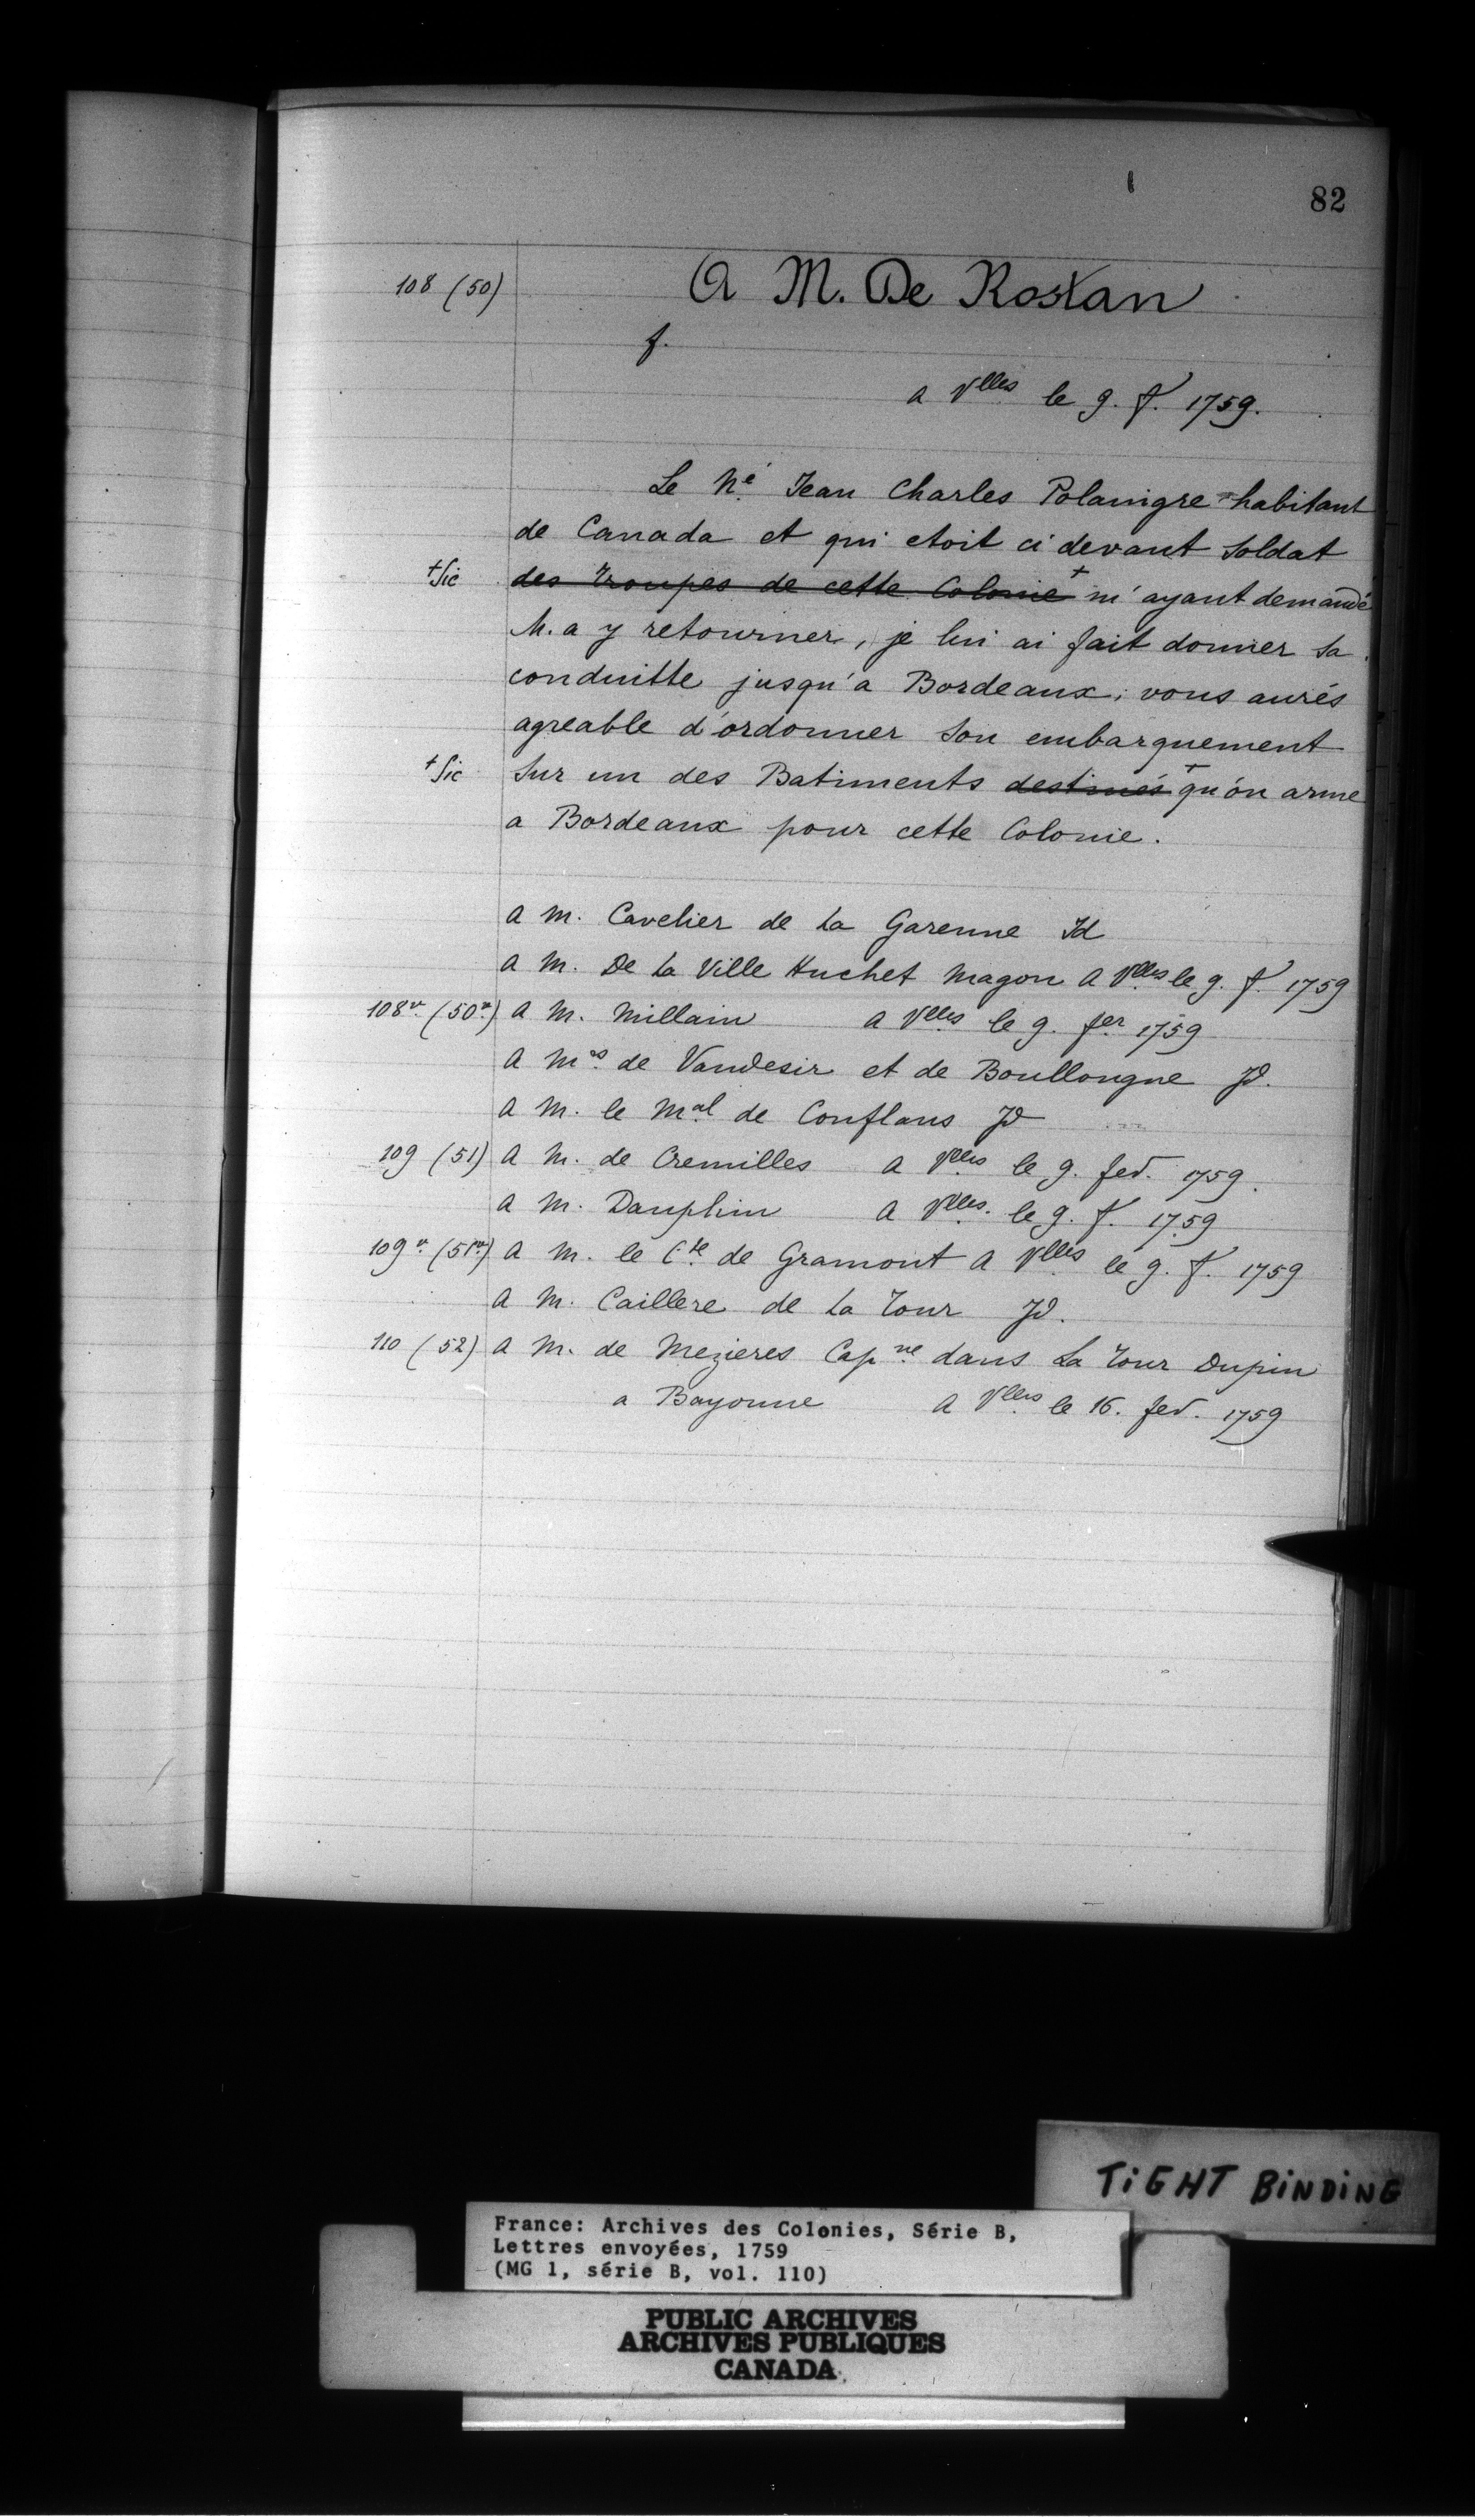 82
108 (50) A M. De Rostan
f.
a Vlles le 9. f. 1759.
Le Né Jean Charles Polaingre habitant
de Canada et qui etoit ci devant Soldat
+ Sic des Troupes de cette Colonie + m'ayant demandé
M. a y retourner, je lui ai fait donner Sa
conduitte jusqu'a Bordeaux; vous aurés
agreable d'ordonner Son embarquement
+ Sic Sur un des Batiments destinés + qu'on arme
a Bordeaux pour cette Colonie.
A M. Cavelier de La Garenne Id
A M. De La Ville Huchet Magon A Vlles le 9. f. 1759
108v. (50v.) A M. Millain A Vlles le 9. fer 1759
A Mrs de Vaudesir et de Boullongne Id.
A M. le Mal de Conflans Id
109 (51) A M. de Cremilles A Vlles le 9. fev. 1759.
A M. Dauphin A Vlles. le 9. f. 1759
109v. (51v.) A M. le Cte de Gramont A Vlles le 9. f. 1759
A M. Caillere de La Tour Id.
110 (52) A M. de Mezieres Capne dans La Tour Dupin
a Bayonne A Vlles le 16. fev. 1759
TIGHT BINDING
France: Archives des Colonies, Série B,
Lettres envoyées, 1759
(MG 1, série B, vol. 110)
PUBLIC ARCHIVES
ARCHIVES PUBLIQUES
CANADA